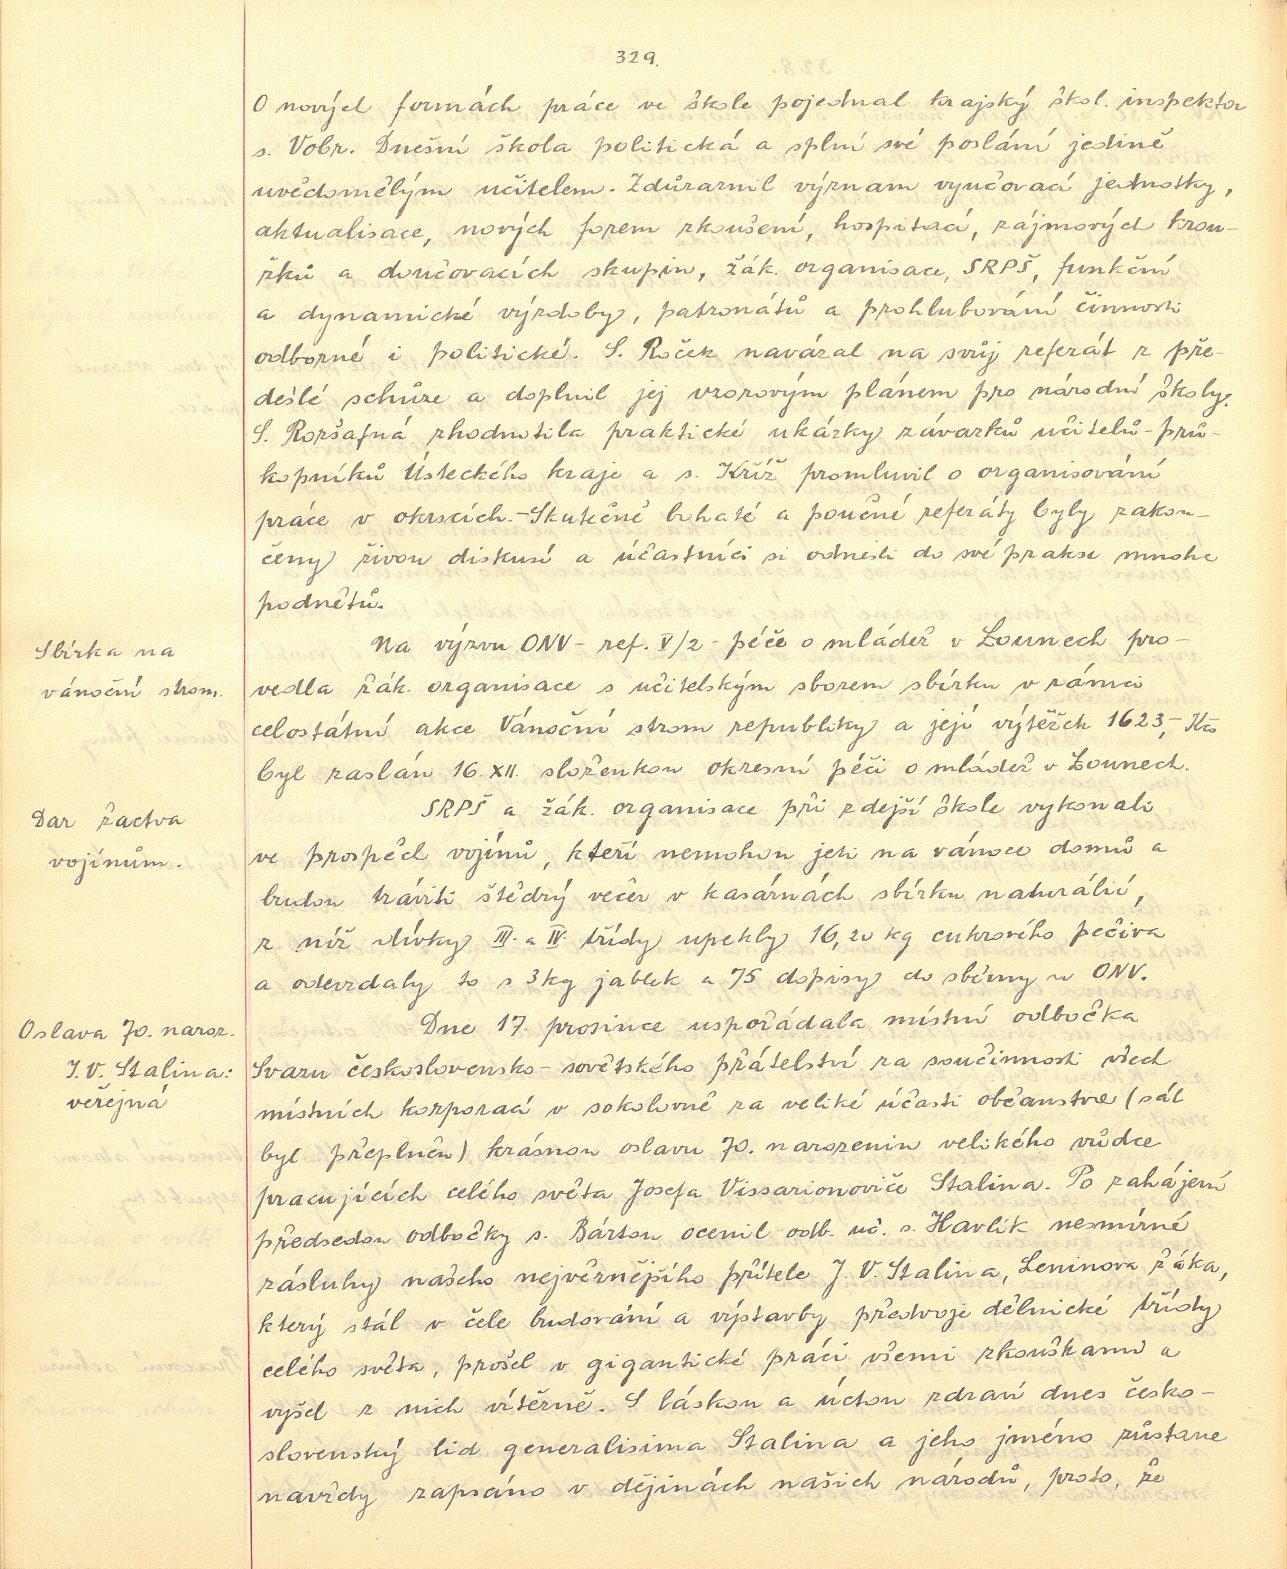 329.
O nových formách práce ve škole pojednal krajský škol. inspektor
s. Vobr. Dnešní škola politická a splní své poslání jedině
uvědomělým učitelem. Zdůraznil význam vyučovací jednotky,
aktualisace, nových forem zkoušení, hospitací, zájmových krou-
žků a doučovacích skupin, žák. organisace, SRPŠ, funkční
a dynamické výzdoby, patronátů a prohlubování činnosti
odborné i politické. S. Roček navázal na svůj referát z pře-
dešlé schůze a doplnil jej vzorovým plánem pro národní školy.
S. Rozšafná zhodnotila praktické ukázky závazků učitelů-prů-
kopníků Ústeckého kraje a s. Kříž promluvil o organisování
práce v okrscích.-Skutečně bohaté a poučné referáty byly zakon-
čeny živou diskusí a účastníci si odnesli do své prakse mnoho
podnětů.
Sbírka na
vánoční strom.
Na výzvu ONV- ref. V/2 - péče o mládež v Lounech pro-
vedla žák. organisace s učitelským sborem sbírku v rámci
celostátní akce Vánoční strom republiky a její výtěžek 1623,- Kčs
byl zaslán 16. XII. složenkou okresní péči o mládež v Lounech.
Dar žactva
vojínům.
SRPŠ a žák. organisace při zdejší škole vykonali
ve prospěch vojínů, kteří nemohou jeti na vánoce domů a
budou tráviti štědrý večer v kasárnách sbírku naturálií,
z níž dívky III. a IV. třídy upekly 16,20 kg cukrového pečiva
a odevzdaly to s 3kg jablek a 75 dopisy do sběrny u ONV.
Oslava 70. naroz.
J.V. Stalina:
veřejná
Dne 17. prosince uspořádala místní odbočka
Svazu československo-sovětského přátelství za součinnosti všech
místních korporací v sokolovně za veliké účasti občanstva (sál
byl přeplněn) krásnou oslavu 70. narozenin velikého vůdce
pracujících celého světa Josefa Vissarionoviče Stalina. Po zahájení
předsedou odbočky s. Bártou ocenil odb. uč. s. Havlík nesmírné
zásluhy našeho nejvěrnějšího přítele J. V. Stalina, Leninova žáka,
který stál v čele budování a výstavby předvoje dělnické třídy
celého světa, prošel v gigantické práci všemi zkouškami a
vyšel z nich vítězně. S láskou a úctou zdraví dnes česko-
slovenský lid generalisima Stalina a jeho jméno zůstane
navždy zapsáno v dějinách našich národů, proto, že